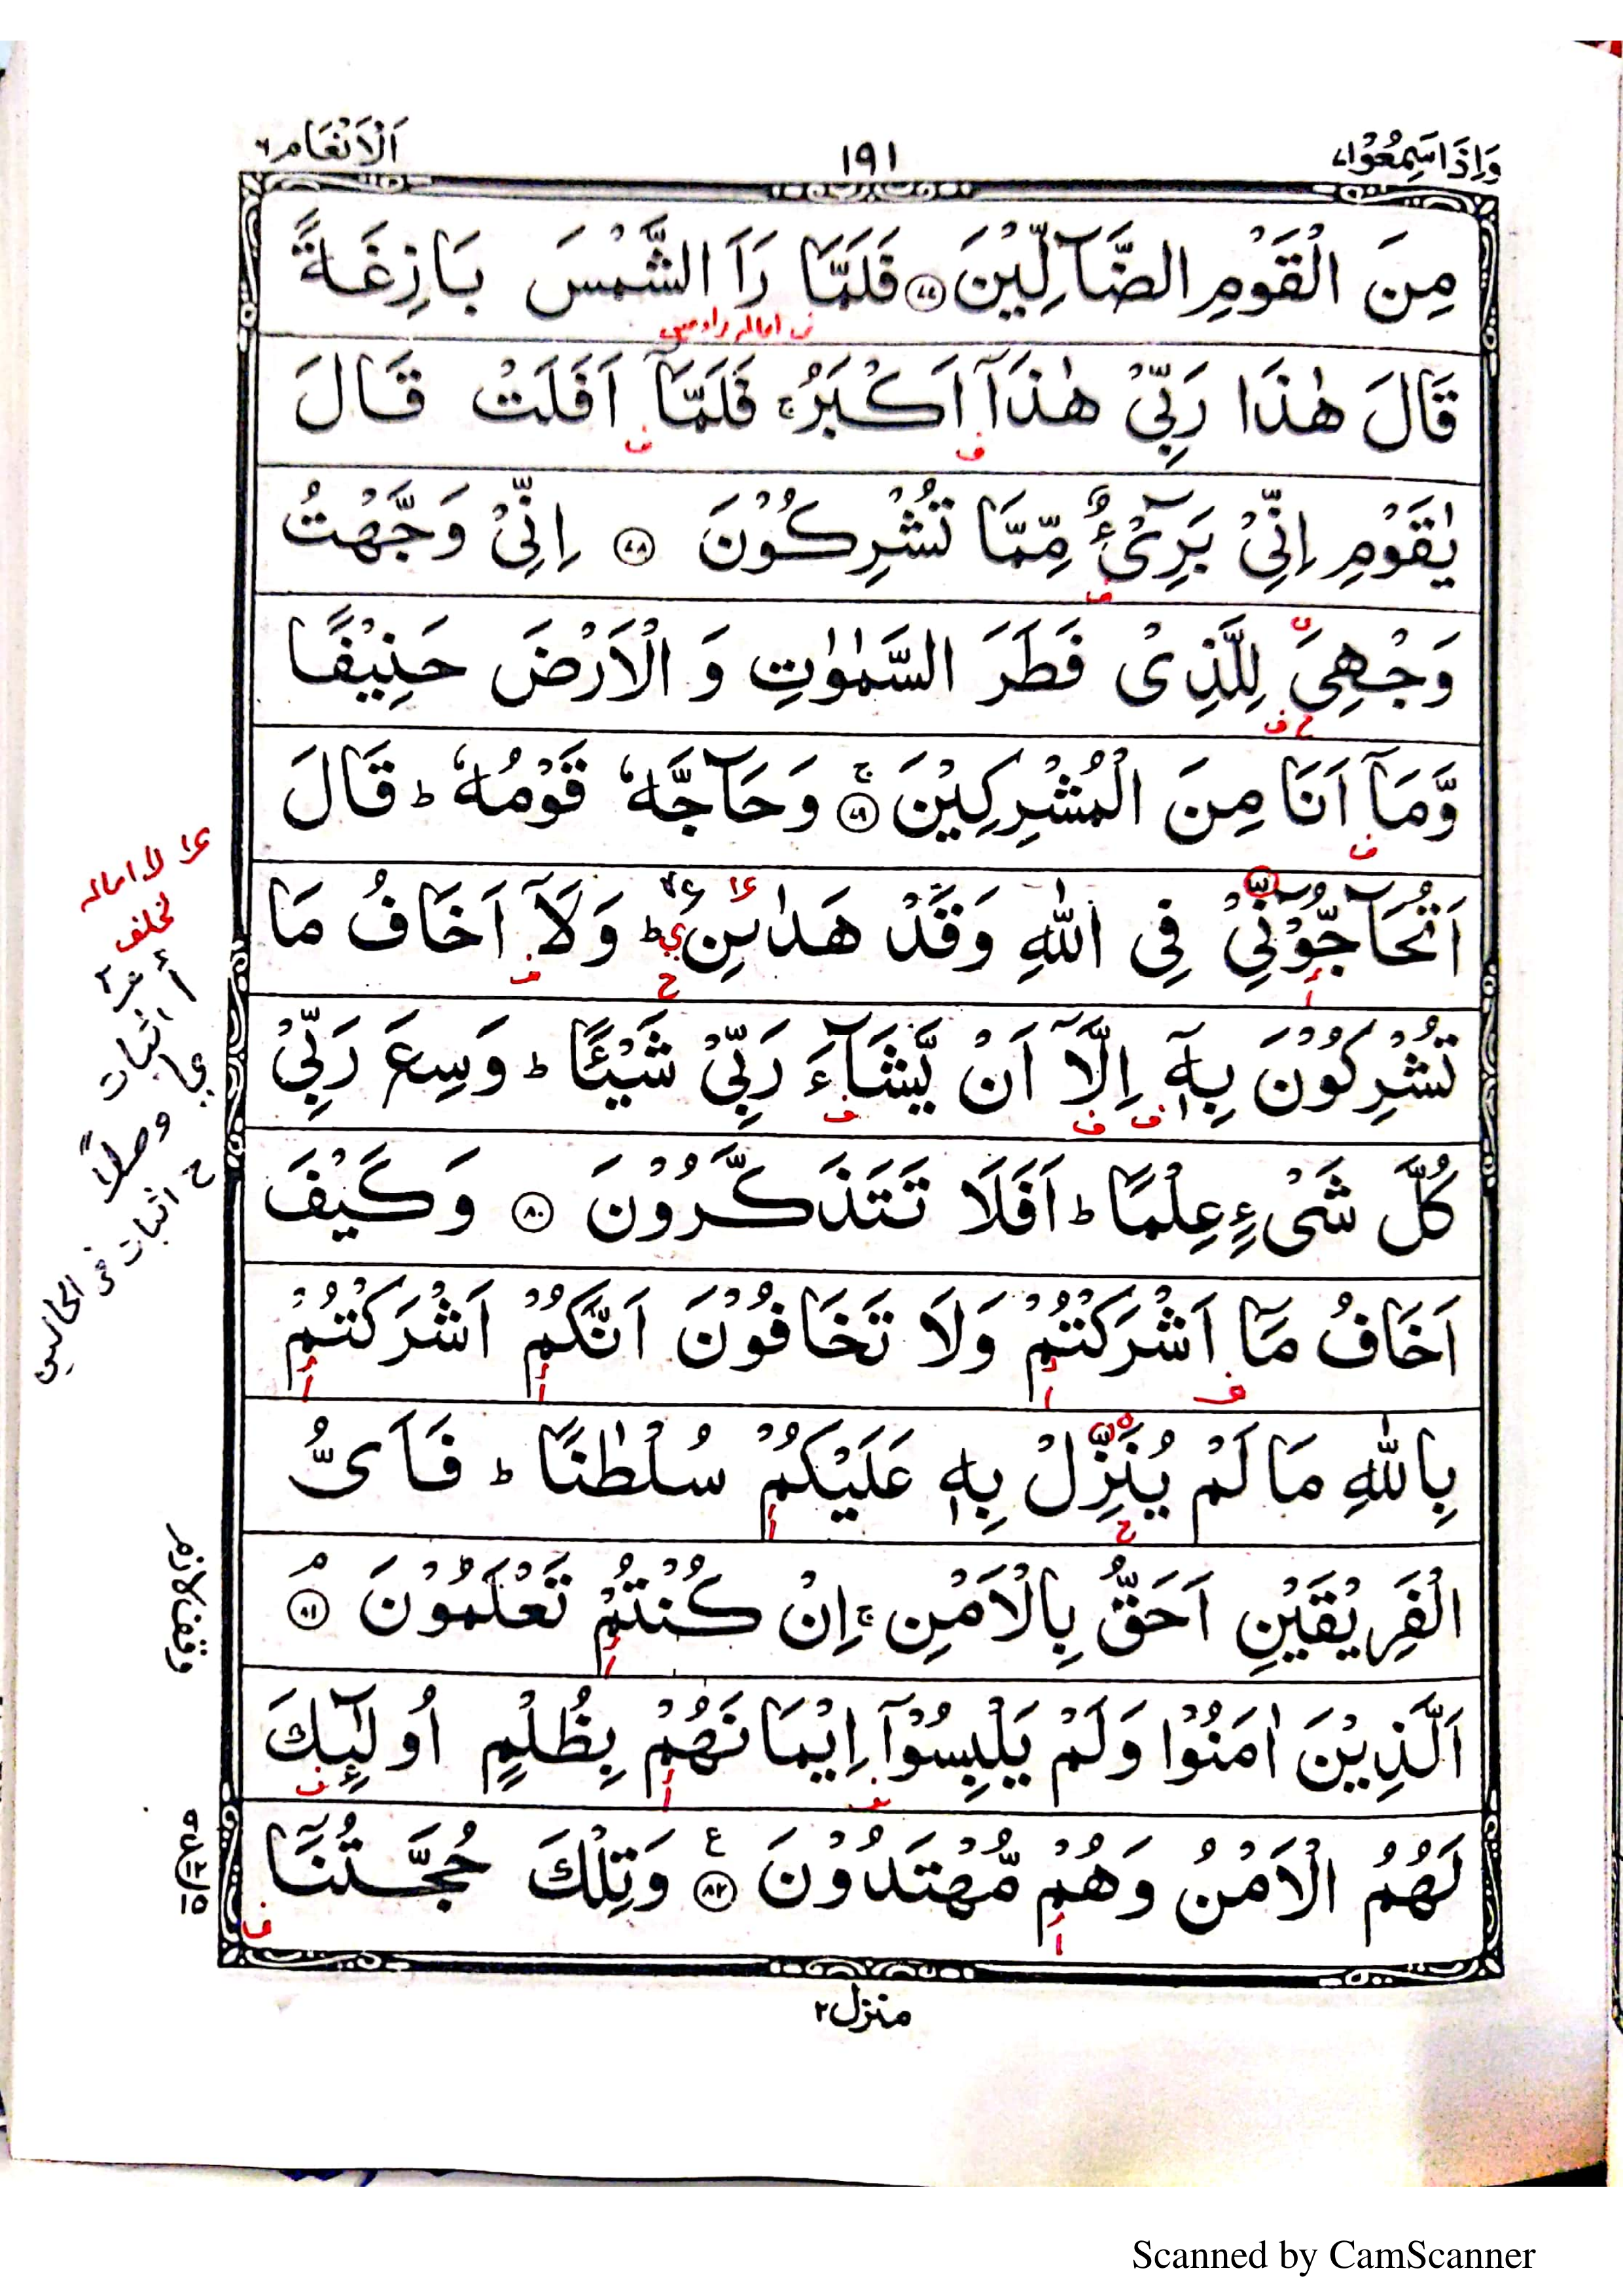 وَاِذَا سَمِعُوْا٧
١٩١
اَلْاَنْعَام٦
مِنَ الْقَوْمِ الضَّآلِّيْنَ ﴿٧٧﴾ فَلَمَّا رَاَ الشَّمْسَ بَازِغَةً
قَالَ هٰذَا رَبِّيْ هٰذَآ اَكْبَرُ ۚ فَلَمَّآ اَفَلَتْ قَالَ
يٰقَوْمِ اِنِّيْ بَرِيْٓءٌ مِّمَّا تُشْرِكُوْنَ ﴿٧٨﴾ اِنِّيْ وَجَّهْتُ
وَجْهِيَ لِلَّذِيْ فَطَرَ السَّمٰوٰتِ وَ الْاَرْضَ حَنِيْفًا
وَّمَآ اَنَا مِنَ الْمُشْرِكِيْنَ ﴿٧٩﴾ ۚ وَحَآجَّهٗ قَوْمُهٗ ؕ قَالَ
اَتُحَآجُّوْٓنِّيْ فِي اللّٰهِ وَقَدْ هَدٰىنِ ؕ وَلَآ اَخَافُ مَا
تُشْرِكُوْنَ بِهٖٓ اِلَّآ اَنْ يَّشَآءَ رَبِّيْ شَيْـًٔا ؕ وَسِعَ رَبِّيْ
كُلَّ شَيْءٍ عِلْمًا ؕ اَفَلَا تَتَذَكَّرُوْنَ ﴿٨٠﴾ وَكَيْفَ
اَخَافُ مَآ اَشْرَكْتُمْ وَلَا تَخَافُوْنَ اَنَّكُمْ اَشْرَكْتُمْ
بِاللّٰهِ مَا لَمْ يُنَزِّلْ بِهٖ عَلَيْكُمْ سُلْطٰنًا ؕ فَاَيُّ
الْفَرِيْقَيْنِ اَحَقُّ بِالْاَمْنِ ۚ اِنْ كُنْتُمْ تَعْلَمُوْنَ ﴿٨١﴾ ۘ
اَلَّذِيْنَ اٰمَنُوْا وَلَمْ يَلْبِسُوْٓا اِيْمَانَهُمْ بِظُلْمٍ اُولٰٓئِكَ
لَهُمُ الْاَمْنُ وَهُمْ مُّهْتَدُوْنَ ﴿٨٢﴾ ع وَتِلْكَ حُجَّتُنَآ
منزل٢
لا اماله
بخلف
اثبات
وصلاً
ح اثبات فى الحالين
وقف لازم
Scanned by CamScanner